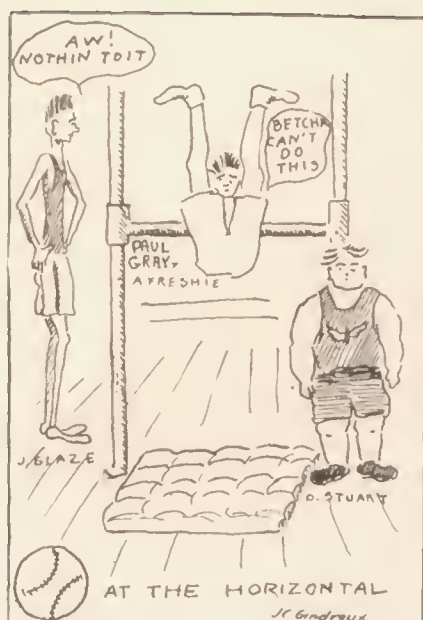 AW!
NOTHIN TO IT
BETCHA
CAN'T
DO
THIS
PAUL
GRAY,
A FRESHIE
J. GLAZE
O. STUART
AT THE HORIZONTAL